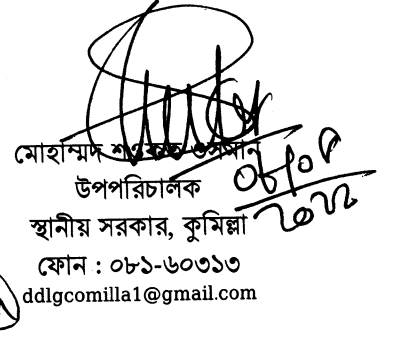 মোহাম্মদ শওকত ওসমান
উপপরিচালক
স্থানীয় সরকার, কুমিল্লা
ফোন : ০৮১-৬০৩১৩
ddlgcomilla1@gmail.com